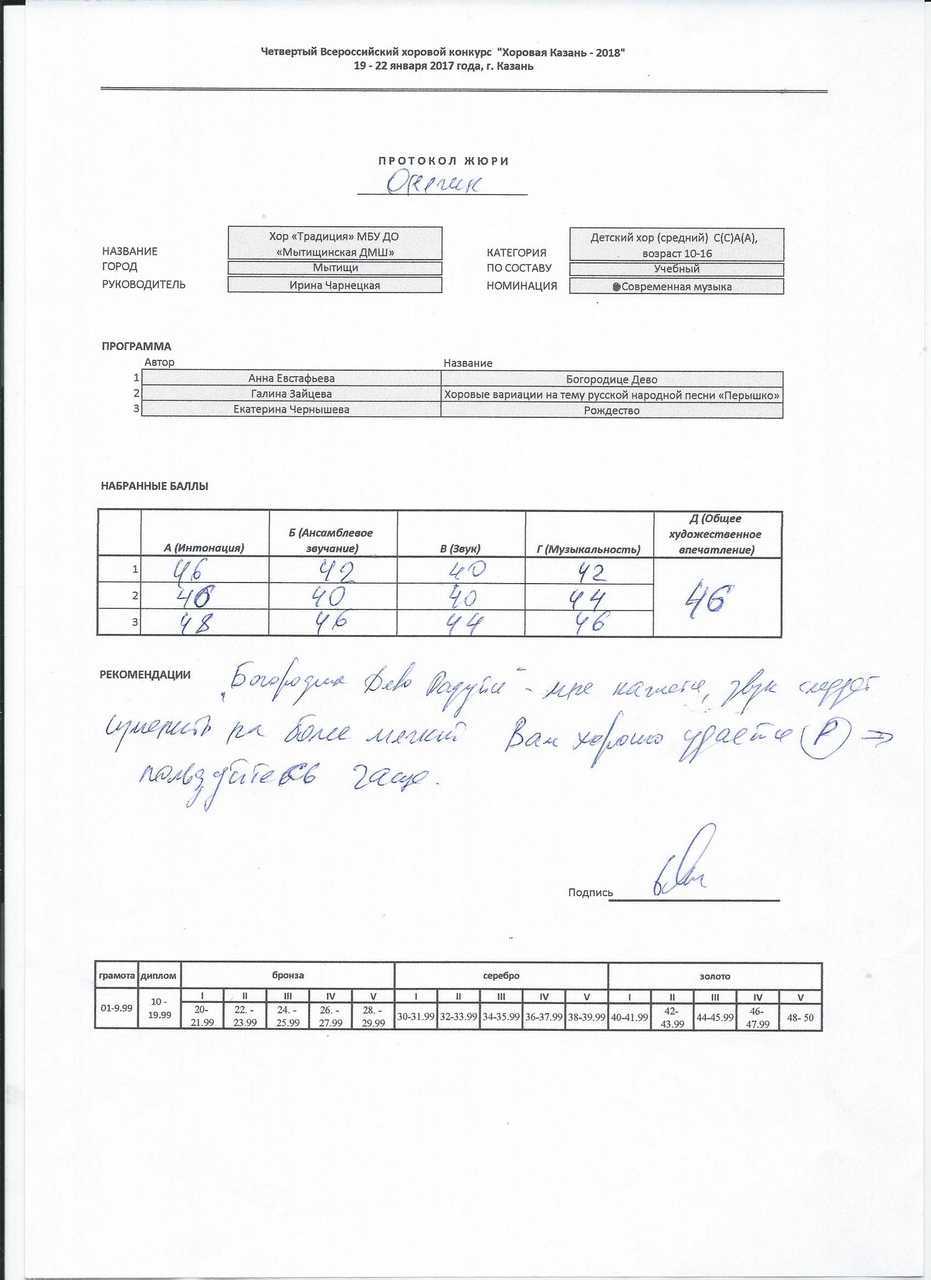 Четвертый Всероссийский хоровой конкурс "Хоровая Казань - 2018"
19 - 22 января 2017 года, г. Казань
ПРОТОКОЛ ЖЮРИ
НАЗВАНИЕ Хор «Традиция» МБУ ДО «Мытищинская ДМШ»
КАТЕГОРИЯ Детский хор (средний) С(С)А(А), возраст 10-16
ГОРОД Мытищи
ПО СОСТАВУ Учебный
РУКОВОДИТЕЛЬ Ирина Чарнецкая
НОМИНАЦИЯ Современная музыка
ПРОГРАММА
Автор Название
1 Анна Евстафьева Богородице Дево
2 Галина Зайцева Хоровые вариации на тему русской народной песни «Перышко»
3 Екатерина Чернышева Рождество
НАБРАННЫЕ БАЛЛЫ
А (Интонация) Б (Ансамблевое звучание) В (Звук) Г (Музыкальность) Д (Общее художественное впечатление)
1 46 42 40 42 46
2 40 40 44
3 48 46 44 46
РЕКОМЕНДАЦИИ "Богородица Дево Радуйся" - мне кажется, звук следует
на более мягкий Вам хорошо удается P →
пользуйтесь чаще.
Подпись
грамота диплом бронза серебро золото
I II III IV V I II III IV V I II III IV V
01-9.99 10 - 19.99 20-21.99 22. - 23.99 24. - 25.99 26. - 27.99 28. - 29.99 30-31.99 32-33.99 34-35.99 36-37.99 38-39.99 40-41.99 42-43.99 44-45.99 46-47.99 48- 50